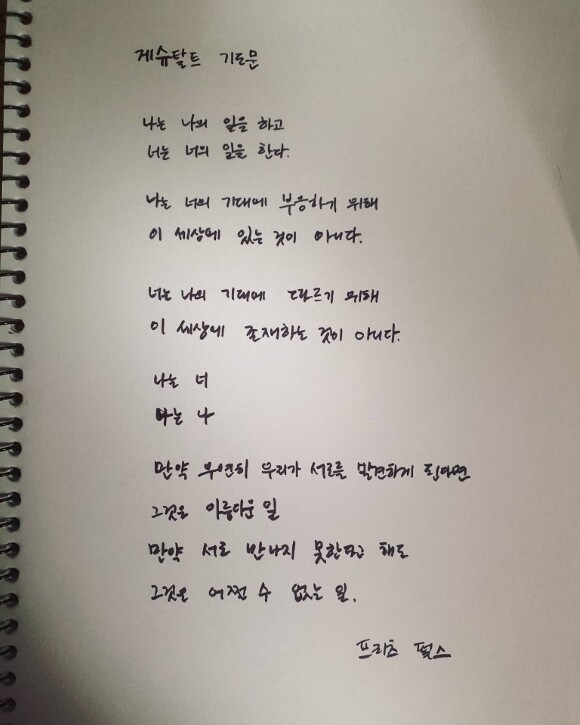 게슈탈트 기도문
나는 나의 일을 하고
너는 너의 일을 한다.
나는 너의 기대에 부응하기 위해
이 세상에 있는 것이 아니다.
너는 나의 기대에 따르기 위해
이 세상에 존재하는 것이 아니다.
나는 너
나는 나
만약 우연히 우리가 서로를 발견하게 된다면
그것은 아름다운 일
만약 서로 만나지 못한다고 해도
그것은 어쩔 수 없는 일.
프리츠 펄스